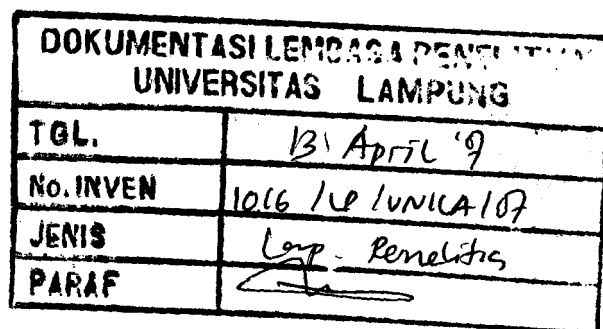 DOKUMENTASI LEMBAGA PENELITIAN
UNIVERSITAS LAMPUNG
TGL. 13 April '9
No. INVEN 1016 / LP / UNILA / 07
JENIS Lap. Penelitian
PARAF